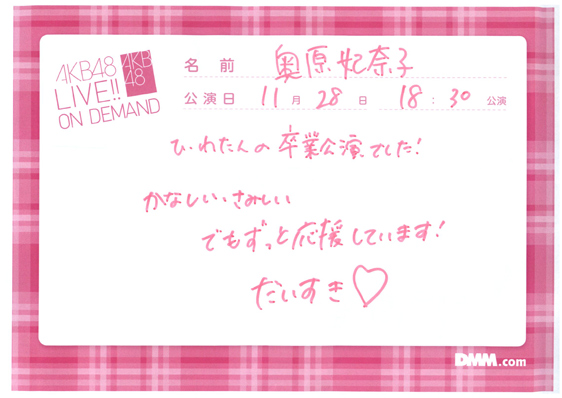 AKB48
LIVE!!
ON DEMAND
AKB
48
名 前 奥原妃奈子
公演日 11月 28日 18:30 公演
ひぃわたんの卒業公演でした!
かなしい、さみしい
でもずっと応援しています!
だいすき♡
DMM.com